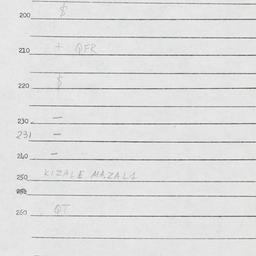 200 $
210 + QFR
220 $
230 —
231 —
240 —
250 KIZALE MAZALA
260 QT